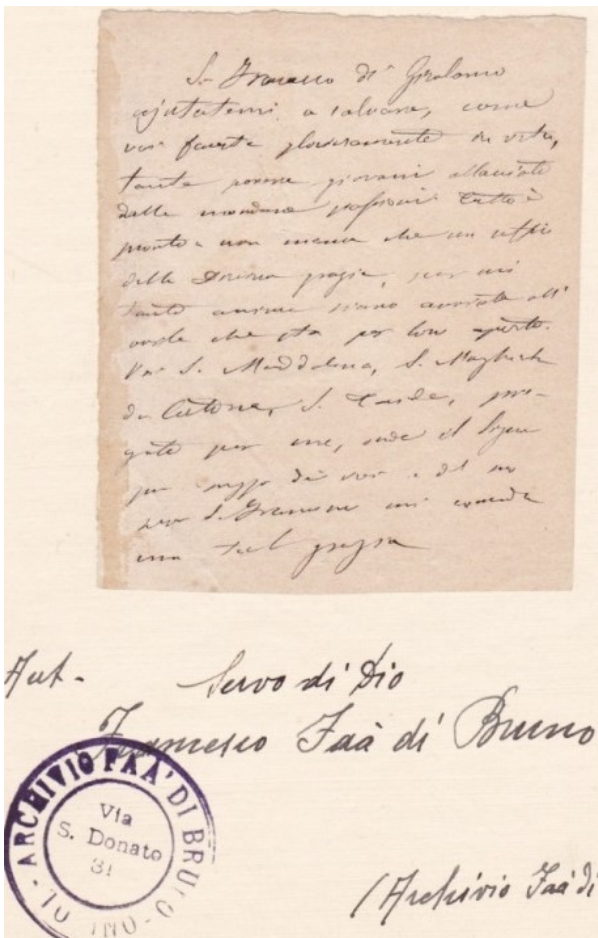 S. Francesco di Girolamo
ajutatemi a salvare, come
voi faceste gloriosamente in vita,
tante povere giovani allacciate
dalle mondane passioni. Tutto è
pronto e non manca che un soffio
della Divina grazia, per cui
tante anime siano avviate all'
ovile che sta per loro aperto.
Voi S. Maddalena, S. Margherita
da Cortona, S. Taide, pre-
gate per me, onde il Signore
per mezzo di voi e del
S. Francesco mi conceda
una tal grazia
Aut. Servo di Dio
Francesco Faà di Bruno
ARCHIVIO FAA' DI BRUNO - TORINO
Via
S. Donato
31
(Archivio Faà di